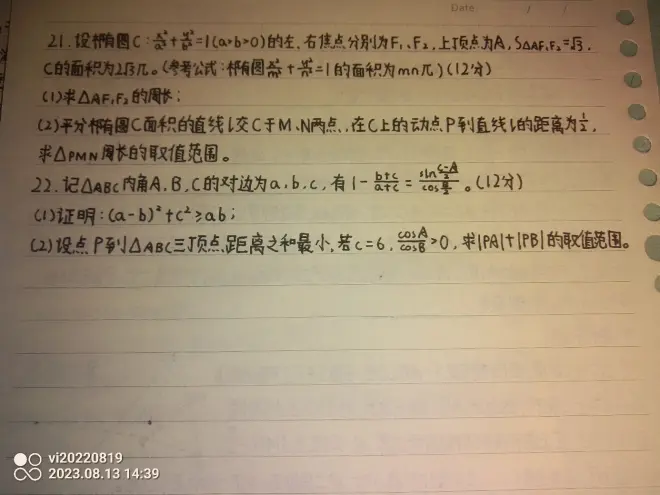 Date / /
21.设椭圆C:x²/a²+y²/b²=1(a>b>0)的左、右焦点分别为F₁、F₂,上顶点为A,S△AF₁F₂=√3,
C的面积为2√3π。(参考公式:椭圆x²/m²+y²/n²=1的面积为mnπ)(12分)
(1)求△AF₁F₂的周长;
(2)平分椭圆C面积的直线l交C于M、N两点,在C上的动点P到直线l的距离为1/2,
求△PMN周长的取值范围。
22.记△ABC内角A、B、C的对边为a、b、c,有1-(b+c)/(a+c)=sin((C-A)/2)/cos(B/2)。(12分)
(1)证明:(a-b)²+c²≥ab;
(2)设点P到△ABC三顶点距离之和最小,若c=6,cosA/cosB>0,求|PA|+|PB|的取值范围。
vi20220819
2023.08.13 14:39